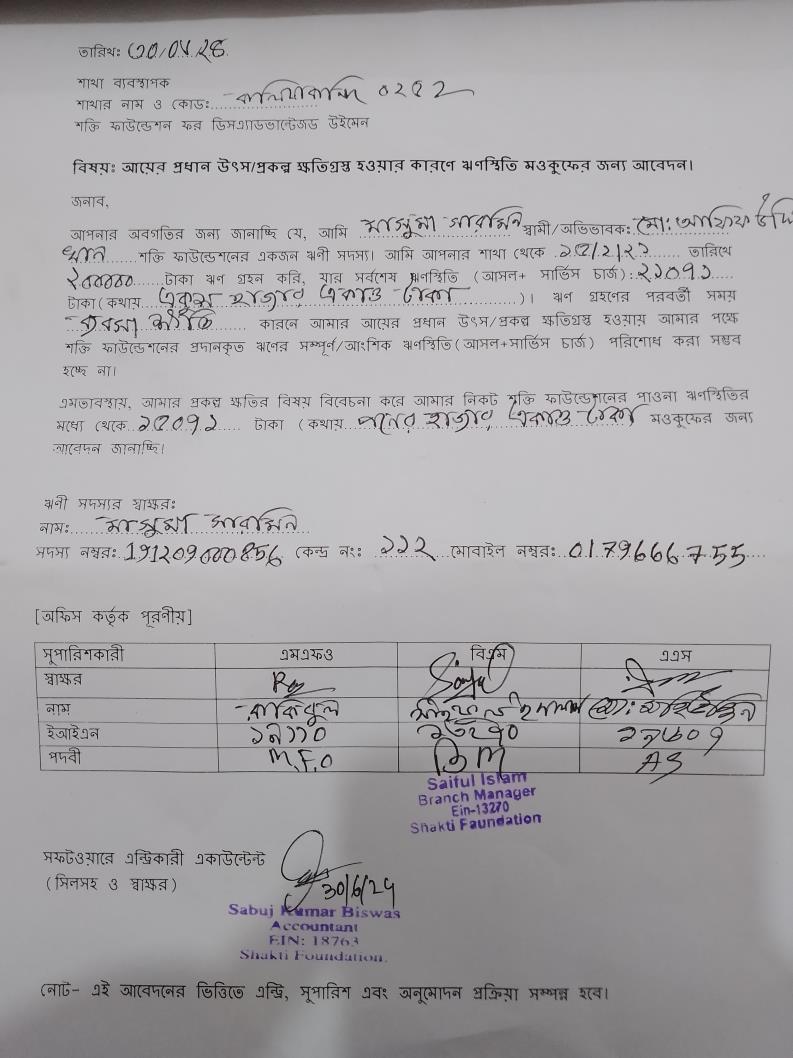 তারিখ: ৩০/০৬/২৪
শাখা ব্যবস্থাপক
শাখার নাম ও কোড: কালিয়াকান্দি ০২৫২
শক্তি ফাউন্ডেশন ফর ডিসএ্যাডভান্টেজড উইমেন
বিষয়: আয়ের প্রধান উৎস/প্রকল্প ক্ষতিগ্রস্থ হওয়ার কারণে ঋণস্থিতি মওকুফের জন্য আবেদন।
জনাব,
আপনার অবগতির জন্য জানাচ্ছি যে, আমি মাসুমা সারমিন স্বামী/অভিভাবক: মো: আফিফ উদ্দি
খান শক্তি ফাউন্ডেশনের একজন ঋনী সদস্য। আমি আপনার শাখা থেকে ১৫/২/২১ তারিখে
২০০০০০ টাকা ঋণ গ্রহন করি, যার সর্বশেষ ঋণস্থিতি (আসল+ সার্ভিস চার্জ): ২১০৭১
টাকা (কথায় একুশ হাজার একাত্ত টাকা )। ঋণ গ্রহণের পরবর্তী সময়
ব্যবসা ক্ষতি কারনে আমার আয়ের প্রধান উৎস/প্রকল্প ক্ষতিগ্রস্থ হওয়ায় আমার পক্ষে
শক্তি ফাউন্ডেশনের প্রদানকৃত ঋণের সম্পূর্ণ/আংশিক ঋণস্থিতি (আসল+সার্ভিস চার্জ) পরিশোধ করা সম্ভব
হচ্ছে না।
এমতাবস্থায়, আমার প্রকল্প ক্ষতির বিষয় বিবেচনা করে আমার নিকট শক্তি ফাউন্ডেশনের পাওনা ঋণস্থিতির
মধ্যে থেকে ১৫০৭১ টাকা (কথায় পনের হাজার একাত্ত টাকা মওকুফের জন্য
আবেদন জানাচ্ছি।
ঋনী সদস্যর স্বাক্ষর:
নাম: মাসুমা সারমিন
সদস্য নম্বর: 191209000856 কেন্দ্র নং: ১১২ মোবাইল নম্বর: 0179666755
[অফিস কর্তৃক পূরনীয়]
সুপারিশকারী এমএফও বিএম এএস
স্বাক্ষর
নাম রাকিবুল
ইআইএন ১৩২৭০
পদবী M.F.O BM AS
Saiful Islam
Branch Manager
Ein-13270
Shakti Faundation
সফটওয়ারে এন্ট্রিকারী একাউন্টেন্ট
(সিলসহ ও স্বাক্ষর) 30/6/24
Sabuj Kumar Biswas
Accountant
EIN: 18763
Shakti Foundation.
নোট- এই আবেদনের ভিত্তিতে এন্ট্রি, সুপারিশ এবং অনুমোদন প্রক্রিয়া সম্পন্ন হবে।